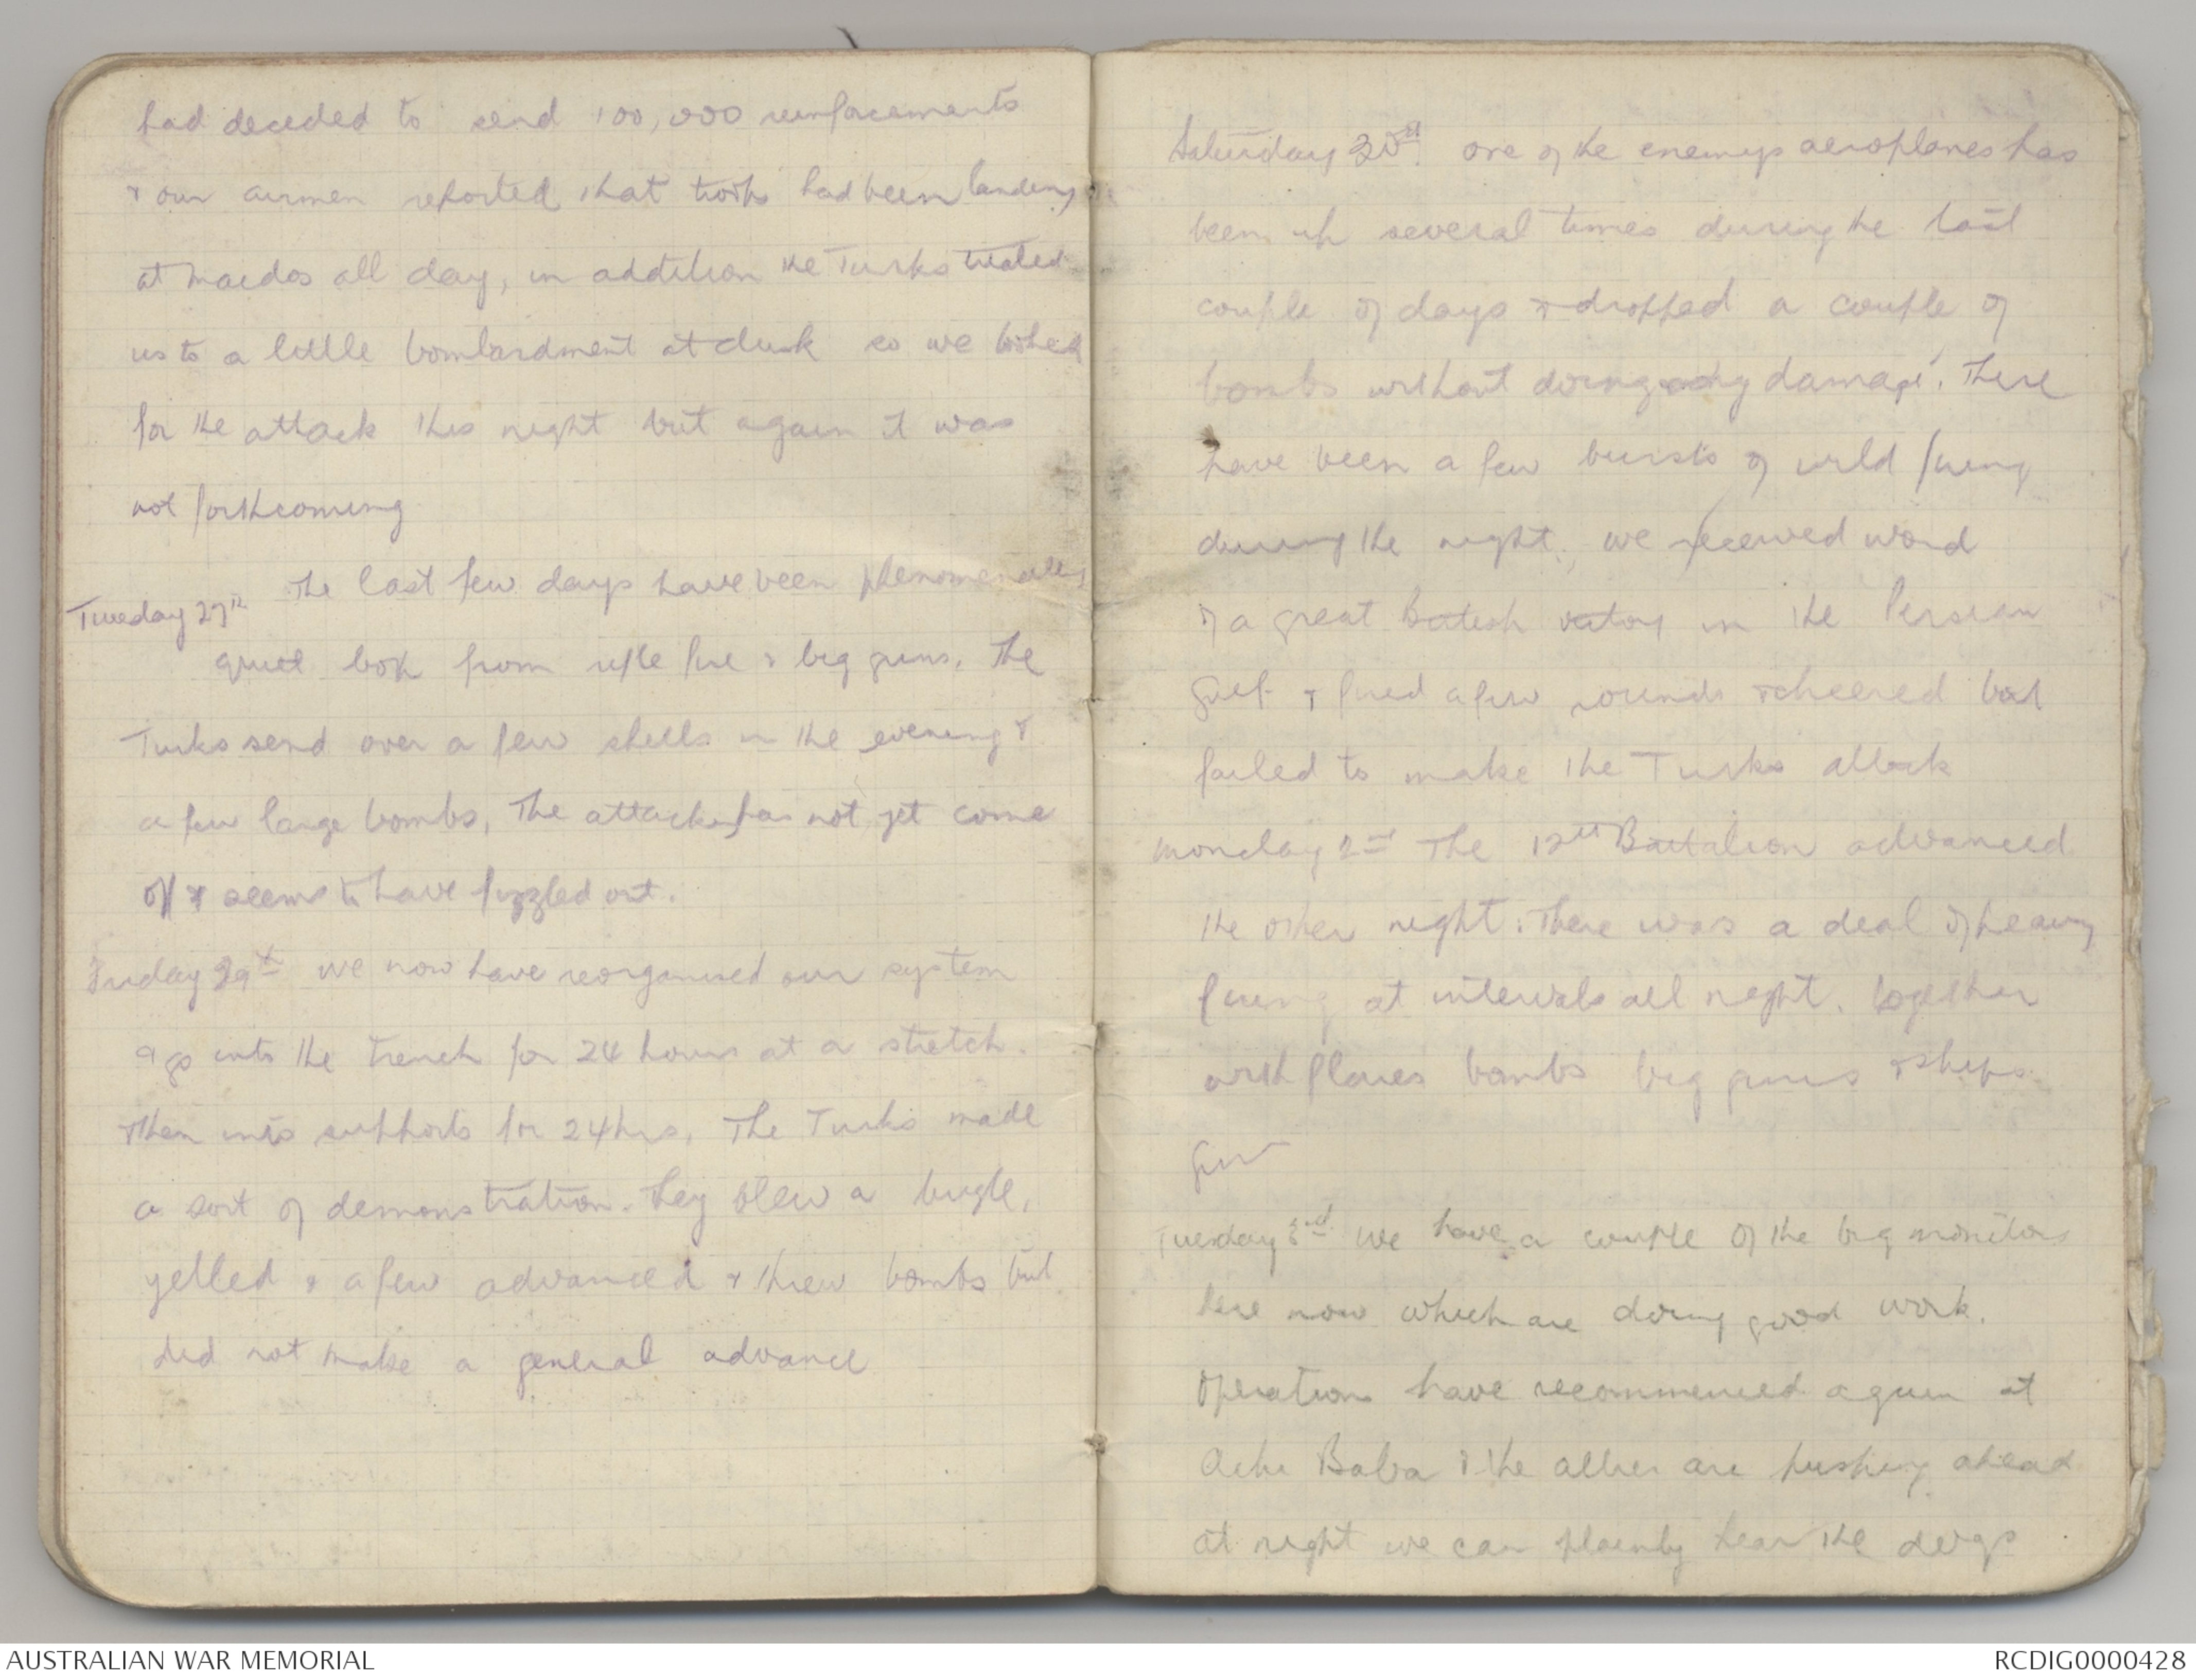 had decided to send 100,000 reinforcements
& our airmen reported that troops had been landing
at Maidos all day, in addition the Turks treated
us to a little bombardment at dusk so we looked
for the attack this night but again it was
not forthcoming
Tuesday 27th The last few days have been phenomenally
quiet both from rifle fire & big guns. The
Turks send over a few shells in the evening &
a few large bombs, The attack has not yet come
off & seems to have fizzled out.
Friday 29th we now have reorganised our system
& go into the trench for 24 hours at a stretch.
& then into supports for 24 hrs. The Turks made
a sort of demonstration. They blew a bugle,
yelled & a few advanced & threw bombs but
did not make a general advance
Saturday one of the enemys aeroplanes has
been up several times during the last
couple of days & dropped a couple of
bombs without doing any damage. There
have been a few bursts of wild firing
during the night, we received word
of a great British victory in the Persian
Gulf & fired a few rounds & cheered but
failed to make the Turks attack
Monday 2nd The 12th Battalion advanced
the other night. There was a deal of heavy
firing at intervals all night. together
with flares bombs big guns & ships
guns
Tuesday 3rd we have a couple of the big monitors
here now which are doing good work.
Operations have recommenced again at
Achi Baba & the allies are pushing ahead
at night we can plainly hear the